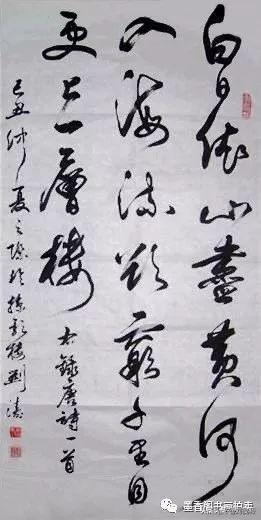 白日依山盡黄河
入海流欲窮千里目
更上一層樓
右録唐詩一首
己丑仲夏之際於樓劉濤
墨香阁书画拍卖